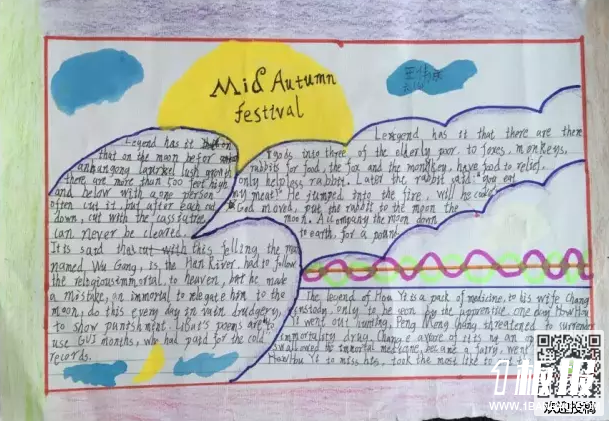 Mid Autumn
festival
Legend has it
that on the moon befor
laurel lush growth
there are more than 500 feet high
and below with a one person
often cut it, but after each cut
down, cut with the cassia tree
can never be cleated.
It is said that cut with this felling the man
named Wu Gang, is the Han River had to follow
the religious immortal, to heaven, but he made
a mistake, an immortal to relegate him to the
moon, do this every day in vain drudgery,
to show punishment. Libai's poems are to
use months, who had paid for the cold
records.
Legend has it that there are three
gods into three of the elderly poor to foxes, monkeys,
rabbits for food, the fox and the monkey, have food to relief,
only helpless rabbit. Later the rabbit said: you eat
my meat! He jumped into the fire, will he
God moved, put the rabbit to the moon the
moon, accompany the moon down
to earth, for a
The legend of Hou Yi is a pack of medicine, to his wife Chang
custody, only to be by the apprentice. one day How Hou
Yi went out hunting, Peng Meng threatened to surrender
immortality drug, Chang e
swallowed the immortal medicine, became a fairy, went
Hou Yi to miss his, took the most like to eat
1板报
WWW.1B
欢迎投稿